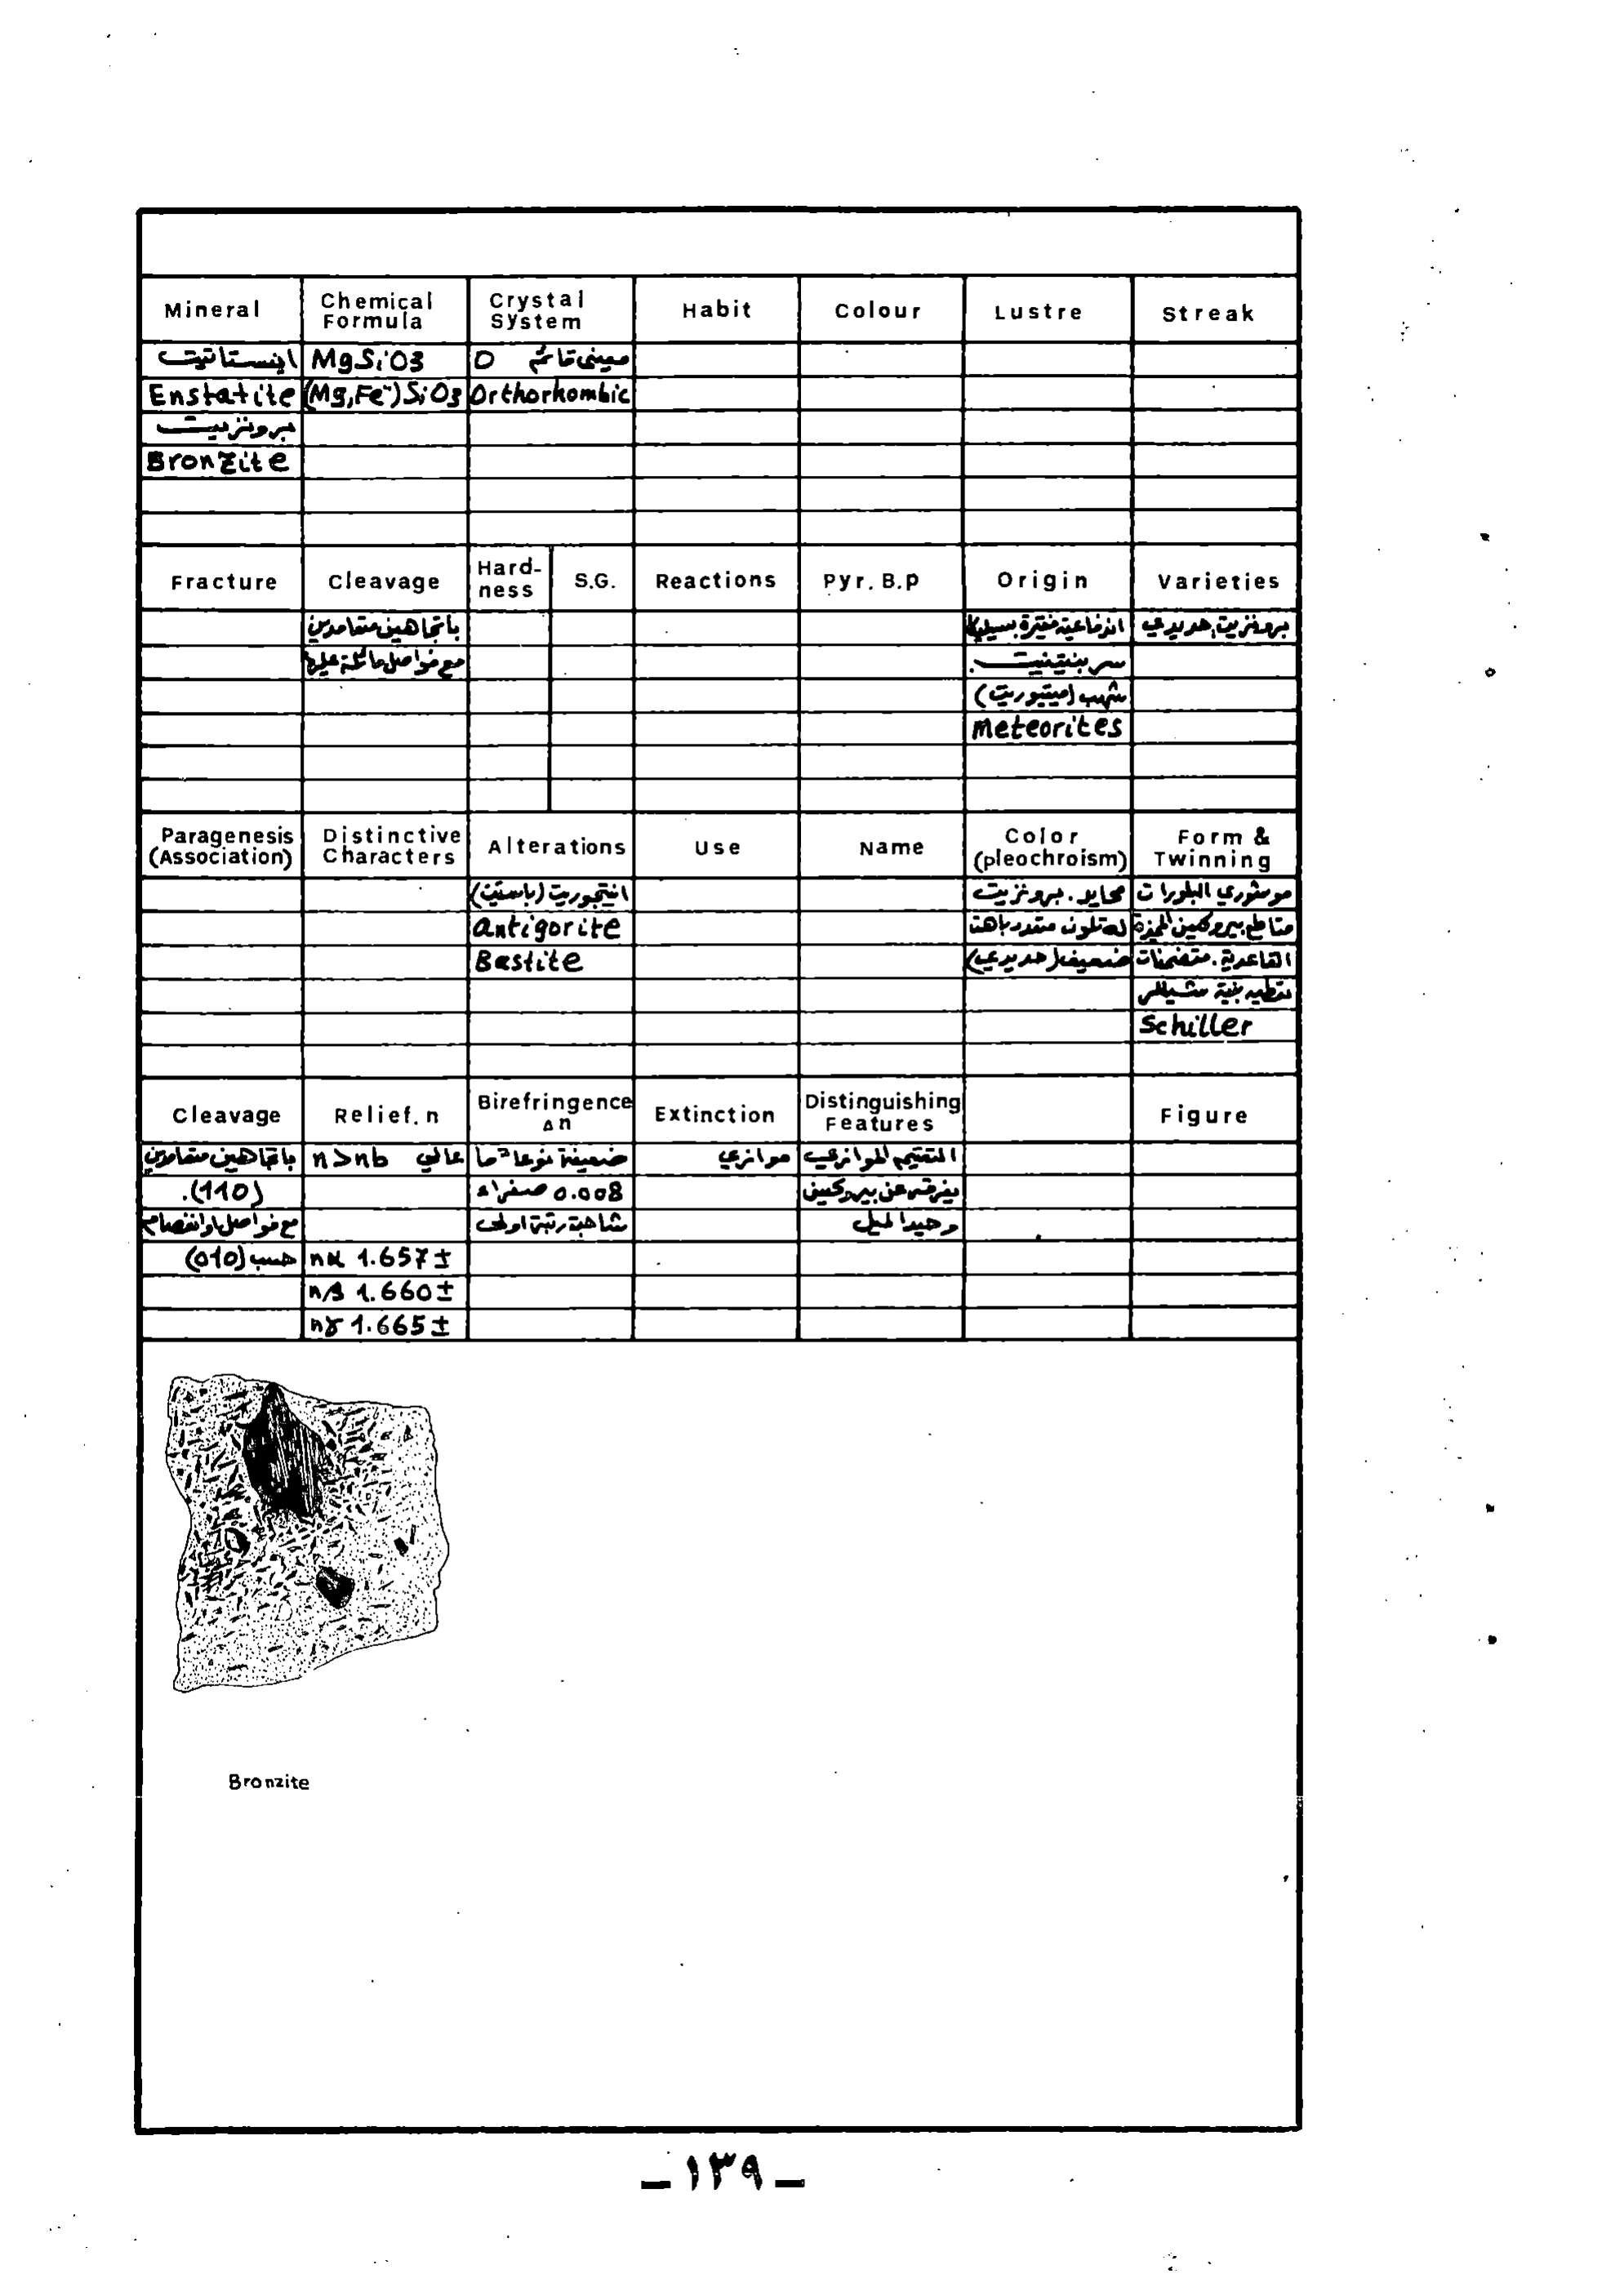 Mineral Chemical Formula Crystal System Habit Colour Lustre Streak
اينستاتيت MgSiO3 O معيني قائم
Enstatite (Mg,Fe")SiO3 Orthorhombic
برونزيت
Bronzite
Fracture Cleavage Hard-ness S.G. Reactions Pyr. B.p Origin Varieties
باتجاهين متعامدين اندفاعية فقيرة بسيليكا برونزيت حديدي
مع فواصل مائلة عليها سربنتينيت.
شهب (ميتيوريت)
meteorites
Paragenesis (Association) Distinctive Characters Alterations Use Name Color (pleochroism) Form & Twinning
انتيجوريت (باستيت) محايد. برونزيت موشوري البلورات
antigorite له تلون متعدد باهت مقاطع بيروكسين المميزة
Bastite ضعيف (حديدي) القاعدية. متضمنات
تعطيه بنية شيللر
Schiller
Cleavage Relief. n Birefringence Δn Extinction Distinguishing Features Figure
باتجاهين متعامدين n>nb عالي ضعيفة نوعا ما موازي التعتيم الموازي
(110). 0.008 صفراء يفرقه عن بيروكسين
مع فواصل او انفصام شاحبة رتبة اولى وحيد الميل
حسب (010) nα 1.657±
nβ 1.660±
nγ 1.665±
Bronzite
_ ١٣٩ _